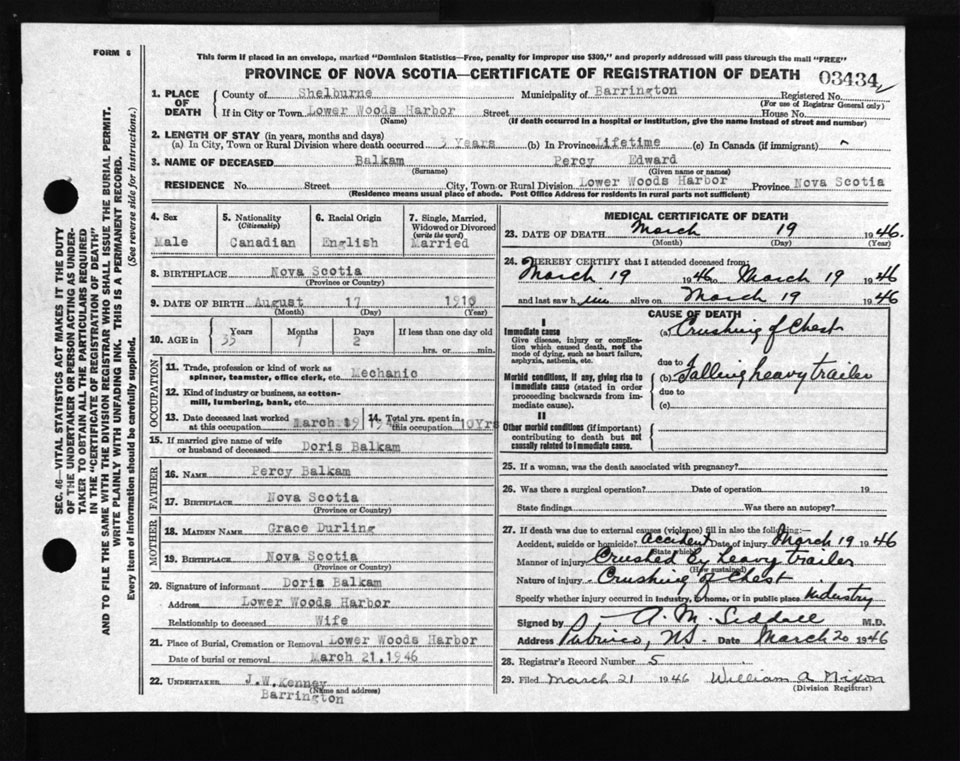 FORM 6
This form if placed in an envelope, marked "Dominion Statistics—Free, penalty for improper use $300," and properly addressed will pass through the mail "FREE"
PROVINCE OF NOVA SCOTIA—CERTIFICATE OF REGISTRATION OF DEATH 03434
1. PLACE OF DEATH
County of Shelburne Municipality of Barrington Registered No.
(For use of Registrar General only)
If in City or Town Lower Woods Harbor Street House No.
(Name) (If death occurred in a hospital or institution, give the name instead of street and number)
2. LENGTH OF STAY (in years, months and days)
(a) In City, Town or Rural Division where death occurred 3 Years (b) In Province Lifetime (c) In Canada (if immigrant)
3. NAME OF DECEASED Balkam Percy Edward
(Surname) (Given name or names)
RESIDENCE No. Street City, Town or Rural Division Lower Woods Harbor Province Nova Scotia
(Residence means usual place of abode. Post Office Address for residents in rural parts not sufficient)
4. Sex
Male
5. Nationality
(Citizenship)
Canadian
6. Racial Origin
English
7. Single, Married, Widowed or Divorced
(write the word)
Married
8. BIRTHPLACE Nova Scotia
(Province or Country)
9. DATE OF BIRTH August 17 1910
(Month) (Day) (Year)
10. AGE in
Years Months Days If less than one day old
35 7 2 hrs. or min.
OCCUPATION
11. Trade, profession or kind of work as
spinner, teamster, office clerk, etc. Mechanic
12. Kind of industry or business, as cotton-
mill, lumbering, bank, etc.
13. Date deceased last worked
at this occupation March 19 1946
14. Total yrs. spent in
this occupation 10 Yrs
15. If married give name of wife
or husband of deceased Doris Balkam
FATHER
16. NAME Percy Balkam
17. BIRTHPLACE Nova Scotia
(Province or Country)
MOTHER
18. MAIDEN NAME Grace Durling
19. BIRTHPLACE Nova Scotia
(Province or Country)
20. Signature of informant Doris Balkam
Address Lower Woods Harbor
Relationship to deceased Wife
21. Place of Burial, Cremation or Removal Lower Woods Harbor
Date of burial or removal March 21, 1946
22. UNDERTAKER J.W. Kenney
(Name and address)
Barrington
MEDICAL CERTIFICATE OF DEATH
23. DATE OF DEATH March 19 1946.
(Month) (Day) (Year)
24. I HEREBY CERTIFY that I attended deceased from:
March 19 1946 to March 19 1946
and last saw him alive on March 19 1946
CAUSE OF DEATH
I
Immediate cause
Give disease, injury or complica-
tion which caused death, not the
mode of dying, such as heart failure,
asphyxia, asthenia, etc.
(a) Crushing of Chest
due to
Morbid conditions, if any, giving rise to
immediate cause (stated in order
proceeding backwards from im-
mediate cause).
(b) Falling heavy trailer
due to
(c)
II
Other morbid conditions (if important)
contributing to death but not
causally related to immediate cause.
25. If a woman, was the death associated with pregnancy?
26. Was there a surgical operation? Date of operation 19
State findings Was there an autopsy?
27. If death was due to external causes (violence) fill in also the following:—
Accident, suicide or homicide? accident Date of injury March 19 1946
(State which)
Manner of injury Crushed by heavy trailer
(How sustained)
Nature of injury Crushing of Chest
Specify whether injury occurred in industry, in home, or in public place Industry
Signed by A. M. Siddall M.D.
Address Pubnico, N.S. Date March 20 1946
28. Registrar's Record Number 5
29. Filed March 21 1946 William A Nixon
(Division Registrar)
SEC. 46—VITAL STATISTICS ACT MAKES IT THE DUTY
OF THE UNDERTAKER OR PERSON ACTING AS UNDER-
TAKER TO OBTAIN ALL THE PARTICULARS REQUIRED
IN THE "CERTIFICATE OF REGISTRATION OF DEATH"
AND TO FILE THE SAME WITH THE DIVISION REGISTRAR WHO SHALL ISSUE THE BURIAL PERMIT.
WRITE PLAINLY WITH UNFADING INK. THIS IS A PERMANENT RECORD.
Every item of information should be carefully supplied. (See reverse side for instructions.)